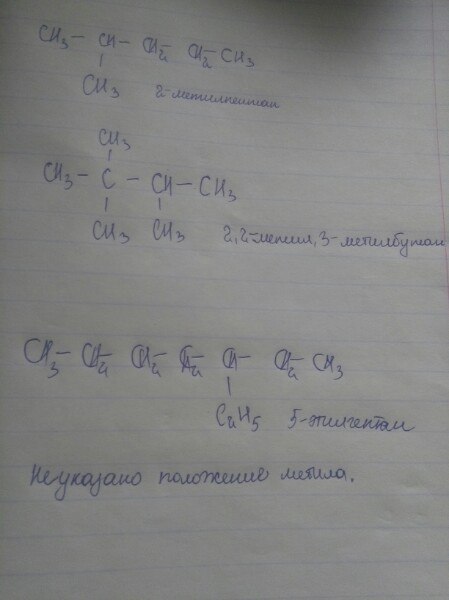 CH3 - CH - CH2 - CH2 - CH3
CH3 2-метилпентан
CH3
CH3 - C - CH - CH3
CH3 CH3 2,2-метил, 3-метилбутан
CH3 - CH2 - CH2 - CH2 - CH - CH2 - CH3
C2H5 5-этилгептан
Не указано положение метила.